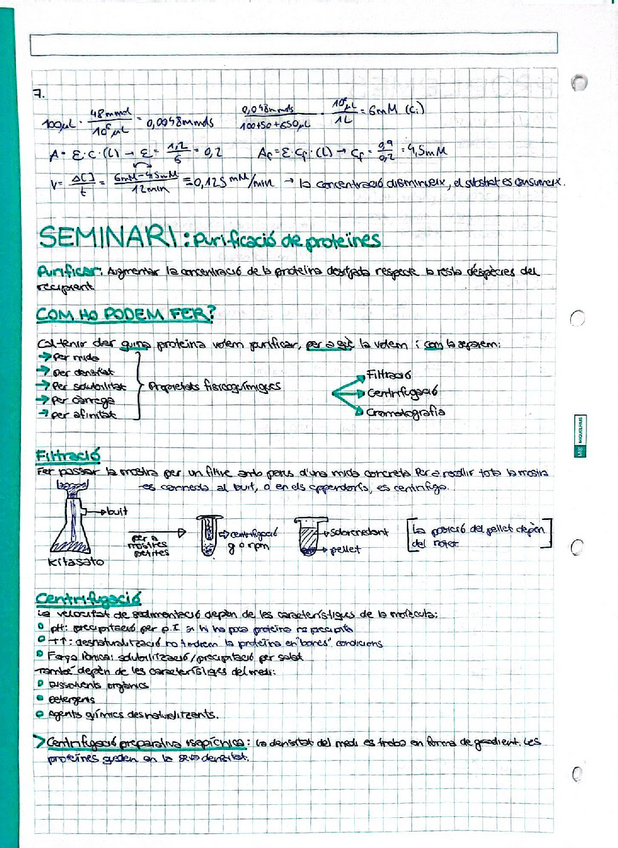 7.
100µL · 48mmol / 10⁶µL = 0,0048mmols 0,048mmols / 100+50+650µL · 10⁶µL / 1L = 6mM (Ci)
A = Ɛ·C·(L) → Ɛ = 1,2 / 6 = 0,2 Af = Ɛ·Cf·(L) → Cf = 0,9 / 0,2 = 4,5mM
V = Δ[ ] / t = 6mM-4,5mM / 12min = 0,125 mM/min → la concentració disminueix, el substrat es consumeix.
SEMINARI: Purificació de proteïnes
Purificar: Augmentar la concentració de la proteïna desitjada respecte la resta d'espècies del
recipient
COM HO PODEM FER?
Cal tenir clar quina proteïna volem purificar, per a què la volem i com la separem:
→ Per mida
→ Per densitat
→ Per solubilitat
→ Per càrrega
→ Per afinitat
Propietats fisicoquímiques
Filtració
Centrifugació
Cromatografia
Filtració
Fer passar la mostra per un filtre amb porus d'una mida concreta. Per a recollir tota la mostra
es connecta al buit, o en els eppendorfs, es centrifuga.
→ buit
Kitasato
per a mostres petites
→ centrifugació
g o rpm
→ sobrenedant
→ pellet
[La posició del pellet depèn
del rotor]
Centrifugació
La velocitat de sedimentació depèn de les característiques de la molècula:
pH: precipitació per p.I. si hi ha poca proteïna no precipita
↑T: desnaturalització no tindrem la proteïna en 'bones' condicions
Força iònica: solubilització/precipitació per salat
També depèn de les característiques del medi:
Dissolvents orgànics
Detergents
Agents químics desnaturalitzants.
> Centrifugació preparativa isopícnica: la densitat del medi es troba en forma de gradient. Les
proteïnes queden en la seva densitat.